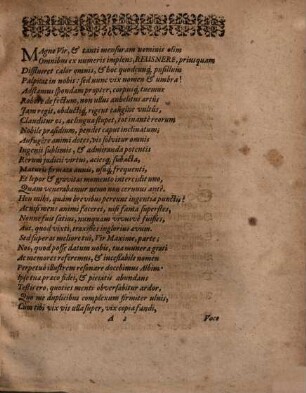 MAgne Vir, & tanti mensuram nominis olim
Omnibus ex numeris implens, REUSNERE, priusquam
Difflueret calor omnis, & hoc quodcunq; pusillum
Palpitat in nobis: sed nunc vix nomen & umbra!
Adstamus spondam propter, corpusq; tuemur
Robore defectum, non ullus anhelitus artus
Jam regit, obductiq; rigent caligine vultus,
Clauditur os, ac lingua stupet, tot inante rearum
Nobile praesidium, pendet caput inclinatum;
Aufugere animi dotes, vis solvitur omnis
Ingenii sublimis, & admiranda potentis
Rerum judicii virtus, aciesq; subacta,
Maturis firmata annis, usuq; frequenti,
Et lepor & gravitas momento intercidit uno,
Quam venerabantur unum non cernimus ante.
Heu mihi, quàm brevibus pereunt ingentia punctis!
At nisi mens animi foret, nisi fama superstes,
Non nefuit satius, nunquam vixisse fuisses,
Aut, quod vixti, traxisses inglorius aevum.
Sed superas meliore tui, Vir Maxime, parte:
Nos, quod posse datum nobis, tua munera grati
At memores referemus, & intestabile nomen
Perpetuò illustrem resonare docebimus Albim.
Ipse tua praeco fidei, & pietatis abundans
Testis ero, quoties mente obversabitur ardor,
Quo me duplicibus complexum firmiter ulnis,
Cum tibi vix vis ulla super, vix copia fandi,
A 2 Voce